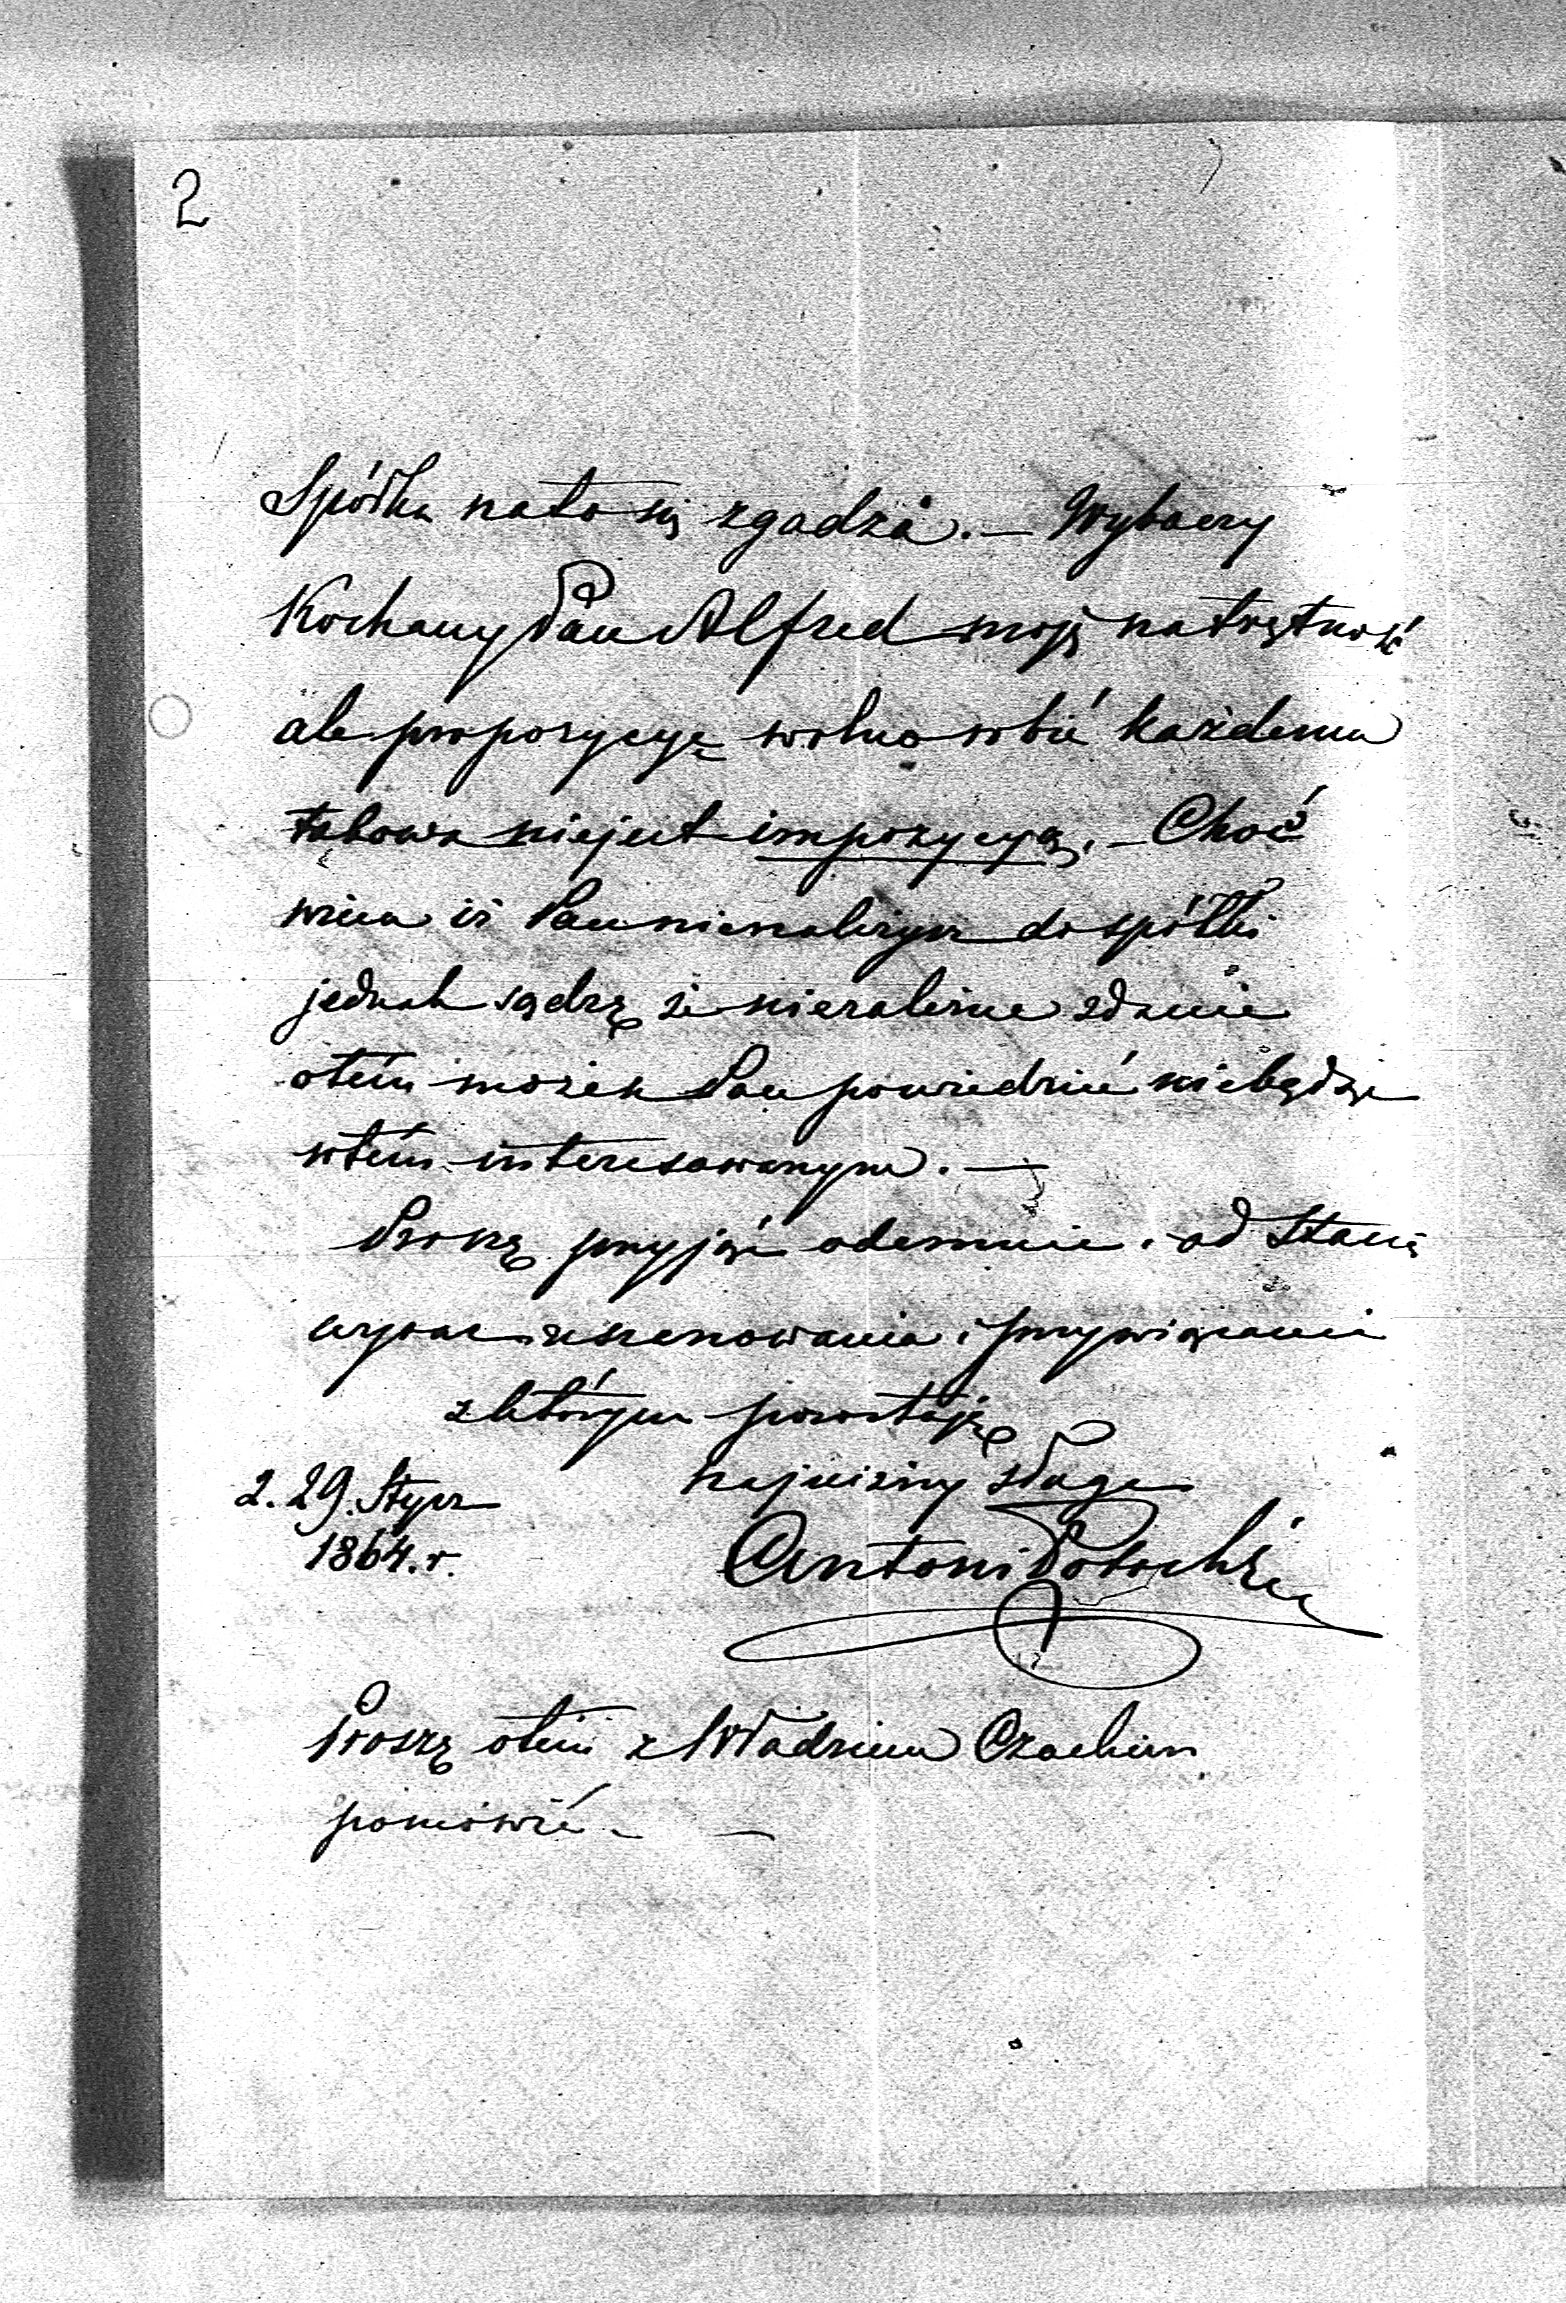 2
Spółka nato się zgadza. — Wybaczy
Kochany Pan Alfred moję natrętność
ale propozycyę wolno robić każdemu
takowa niejest impozycyą. — Choć
wiem iż Pan nienależysz do spółki
jednak sądzę że niezależne zdanie
otém możesz Pan powiedzieć niebędąc
wtém interesowanym. —
Proszę przyjąć odemnie i od Stasia
wyraz uszanowania i przywiązania
zktórym pozostaję
najniższy sługa
2. 29. Stycz
1864. r.
Antoni Potocki
Proszę otém z Władziem Czackim
pomówić. —